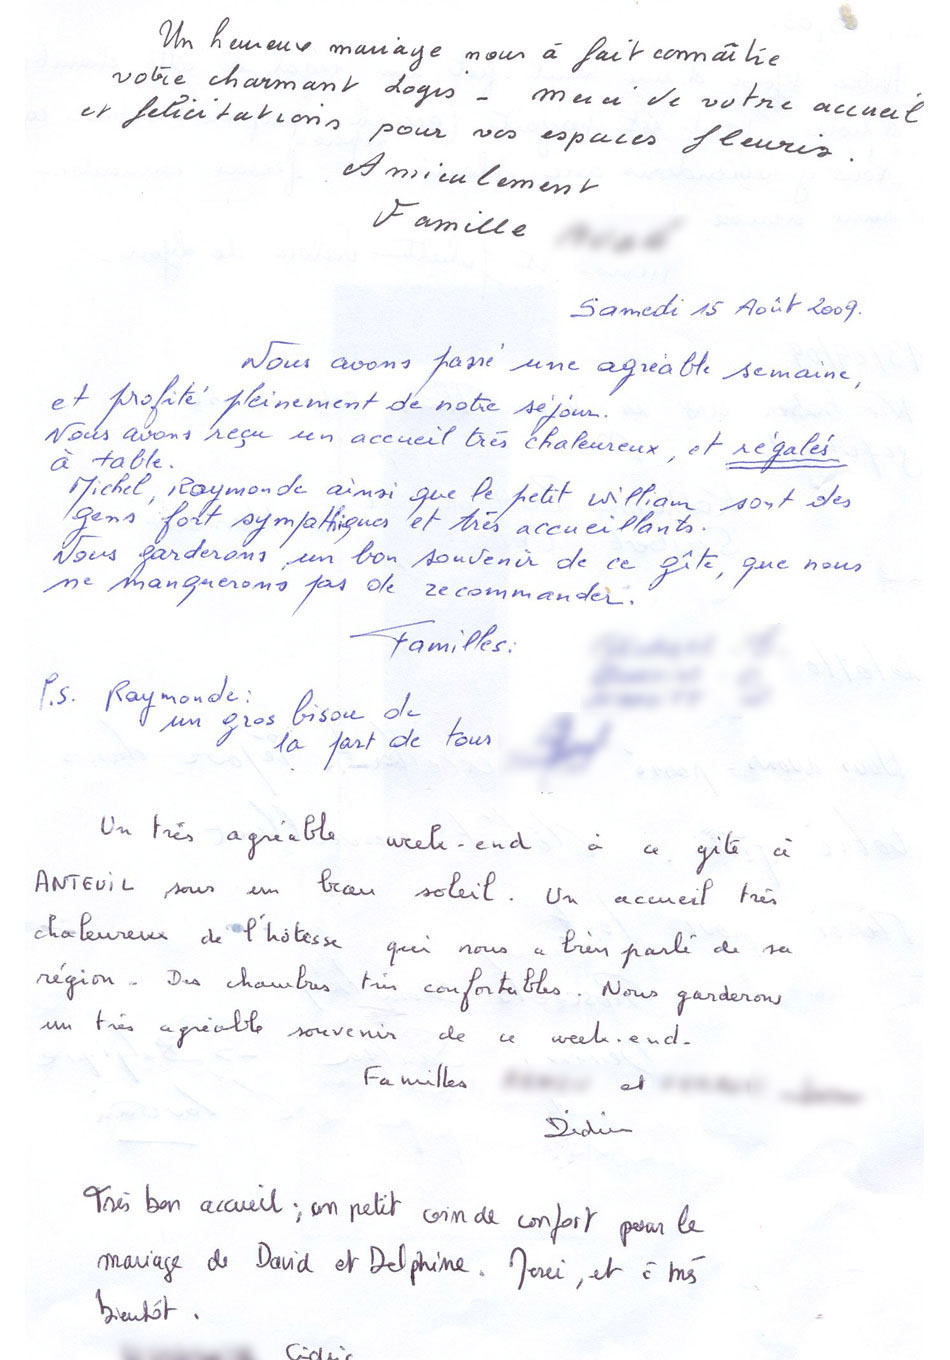 Un heureux mariage nous à fait connaître
votre charmant Logis - merci de votre accueil
et félicitations pour vos espaces fleuris.
Amicalement
Famille
Samedi 15 Août 2009.
Nous avons passé une agréable semaine,
et profité pleinement de notre séjour.
Nous avons reçu un accueil très chaleureux, et régalés
à table.
Michel, Raymonde ainsi que le petit william sont des
gens fort sympathiques et très accueillants.
Nous garderons un bon souvenir de ce gîte, que nous
ne manquerons pas de recommander.
Familles:
P.s. Raymonde:
un gros bisou de
la part de tous
Un très agréable week-end à ce gîte à
ANTEUIL sous un beau soleil. Un accueil très
chaleureux de l'hôtesse qui nous a bien parlé de sa
région. Des chambres très confortables. Nous garderons
un très agréable souvenir de ce week-end.
Familles et
Didier
Très bon accueil ; un petit coin de confort pour le
mariage de David et Delphine. Merci, et à très
bientôt.
Cédric